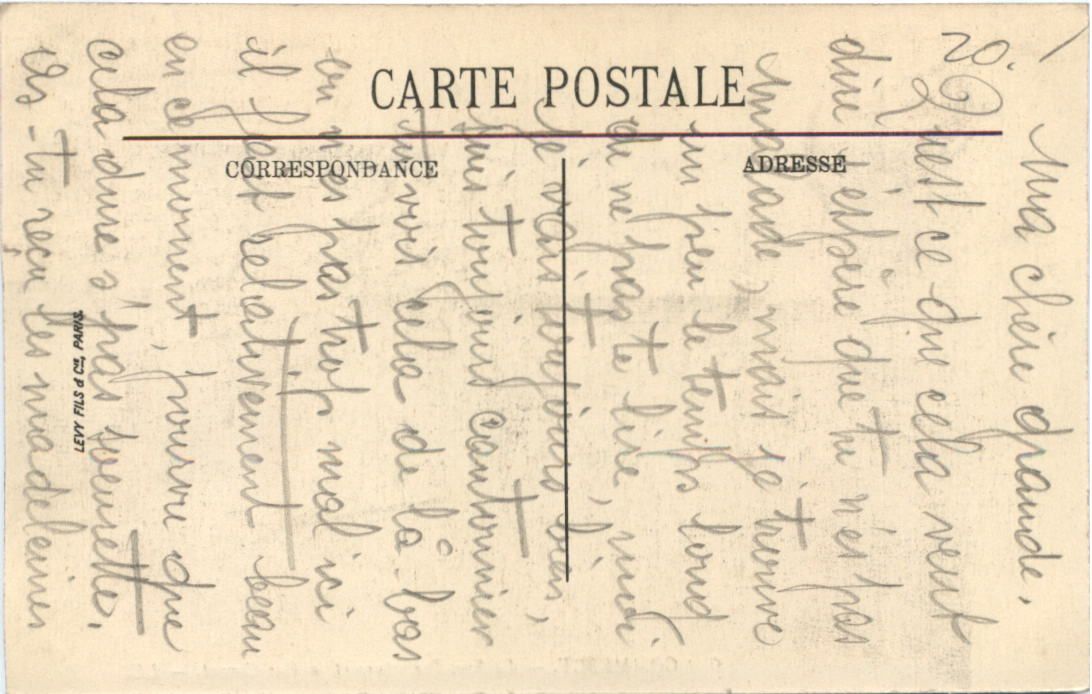 CARTE POSTALE
CORRESPONDANCE
ADRESSE
LEVY FILS & Cie, PARIS.
20.
Ma chère grande,
Quest ce que cela veut
dire j'espère que tu n'es pas
malade, mais je trouve
un peu le temps long
de ne pas te lire, moi
je vais toujours bien,
suis toujours cantonnier
tu vois cela de là-bas
on est pas trop mal ici
il fait relativement beau
en ce moment, pourvu que
cela dure s'pas soeurette.
As-tu reçu les madeleines